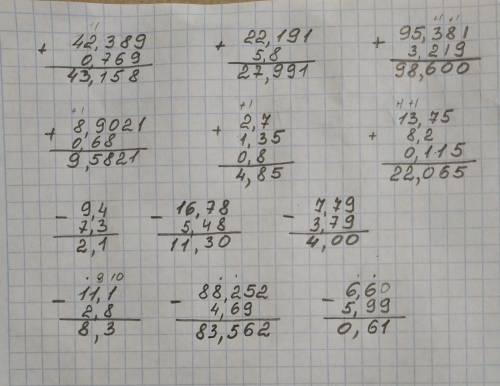 +1 +1 +1
+ 42,389 + 22,191 + 95,381
0,769 5,8 3,219
43,158 27,991 98,600
+1 +1 +1 +1
+ 8,9021 + 2,7 + 13,75
0,68 1,35 8,2
9,5821 0,8 0,115
4,85 22,065
- 9,4 - 16,78 - 7,79
7,3 5,48 3,79
2,1 11,30 4,00
. 9 10 . . . .
- 11,1 - 88,252 - 6,60
2,8 4,69 5,99
8,3 83,562 0,61